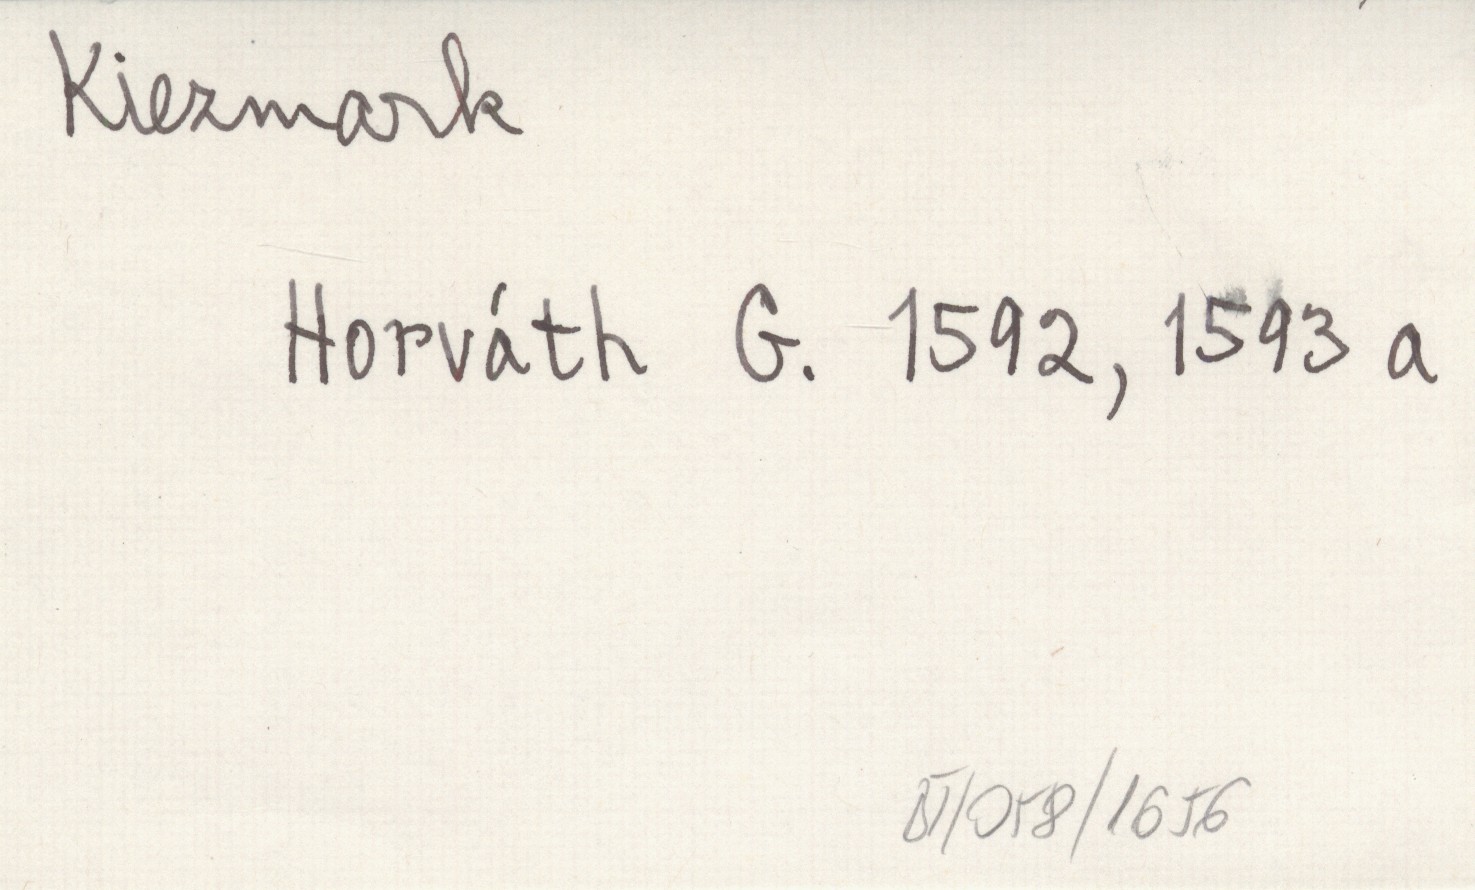 Kiezmark
Horváth G. 1592, 1593 a
/058/1656